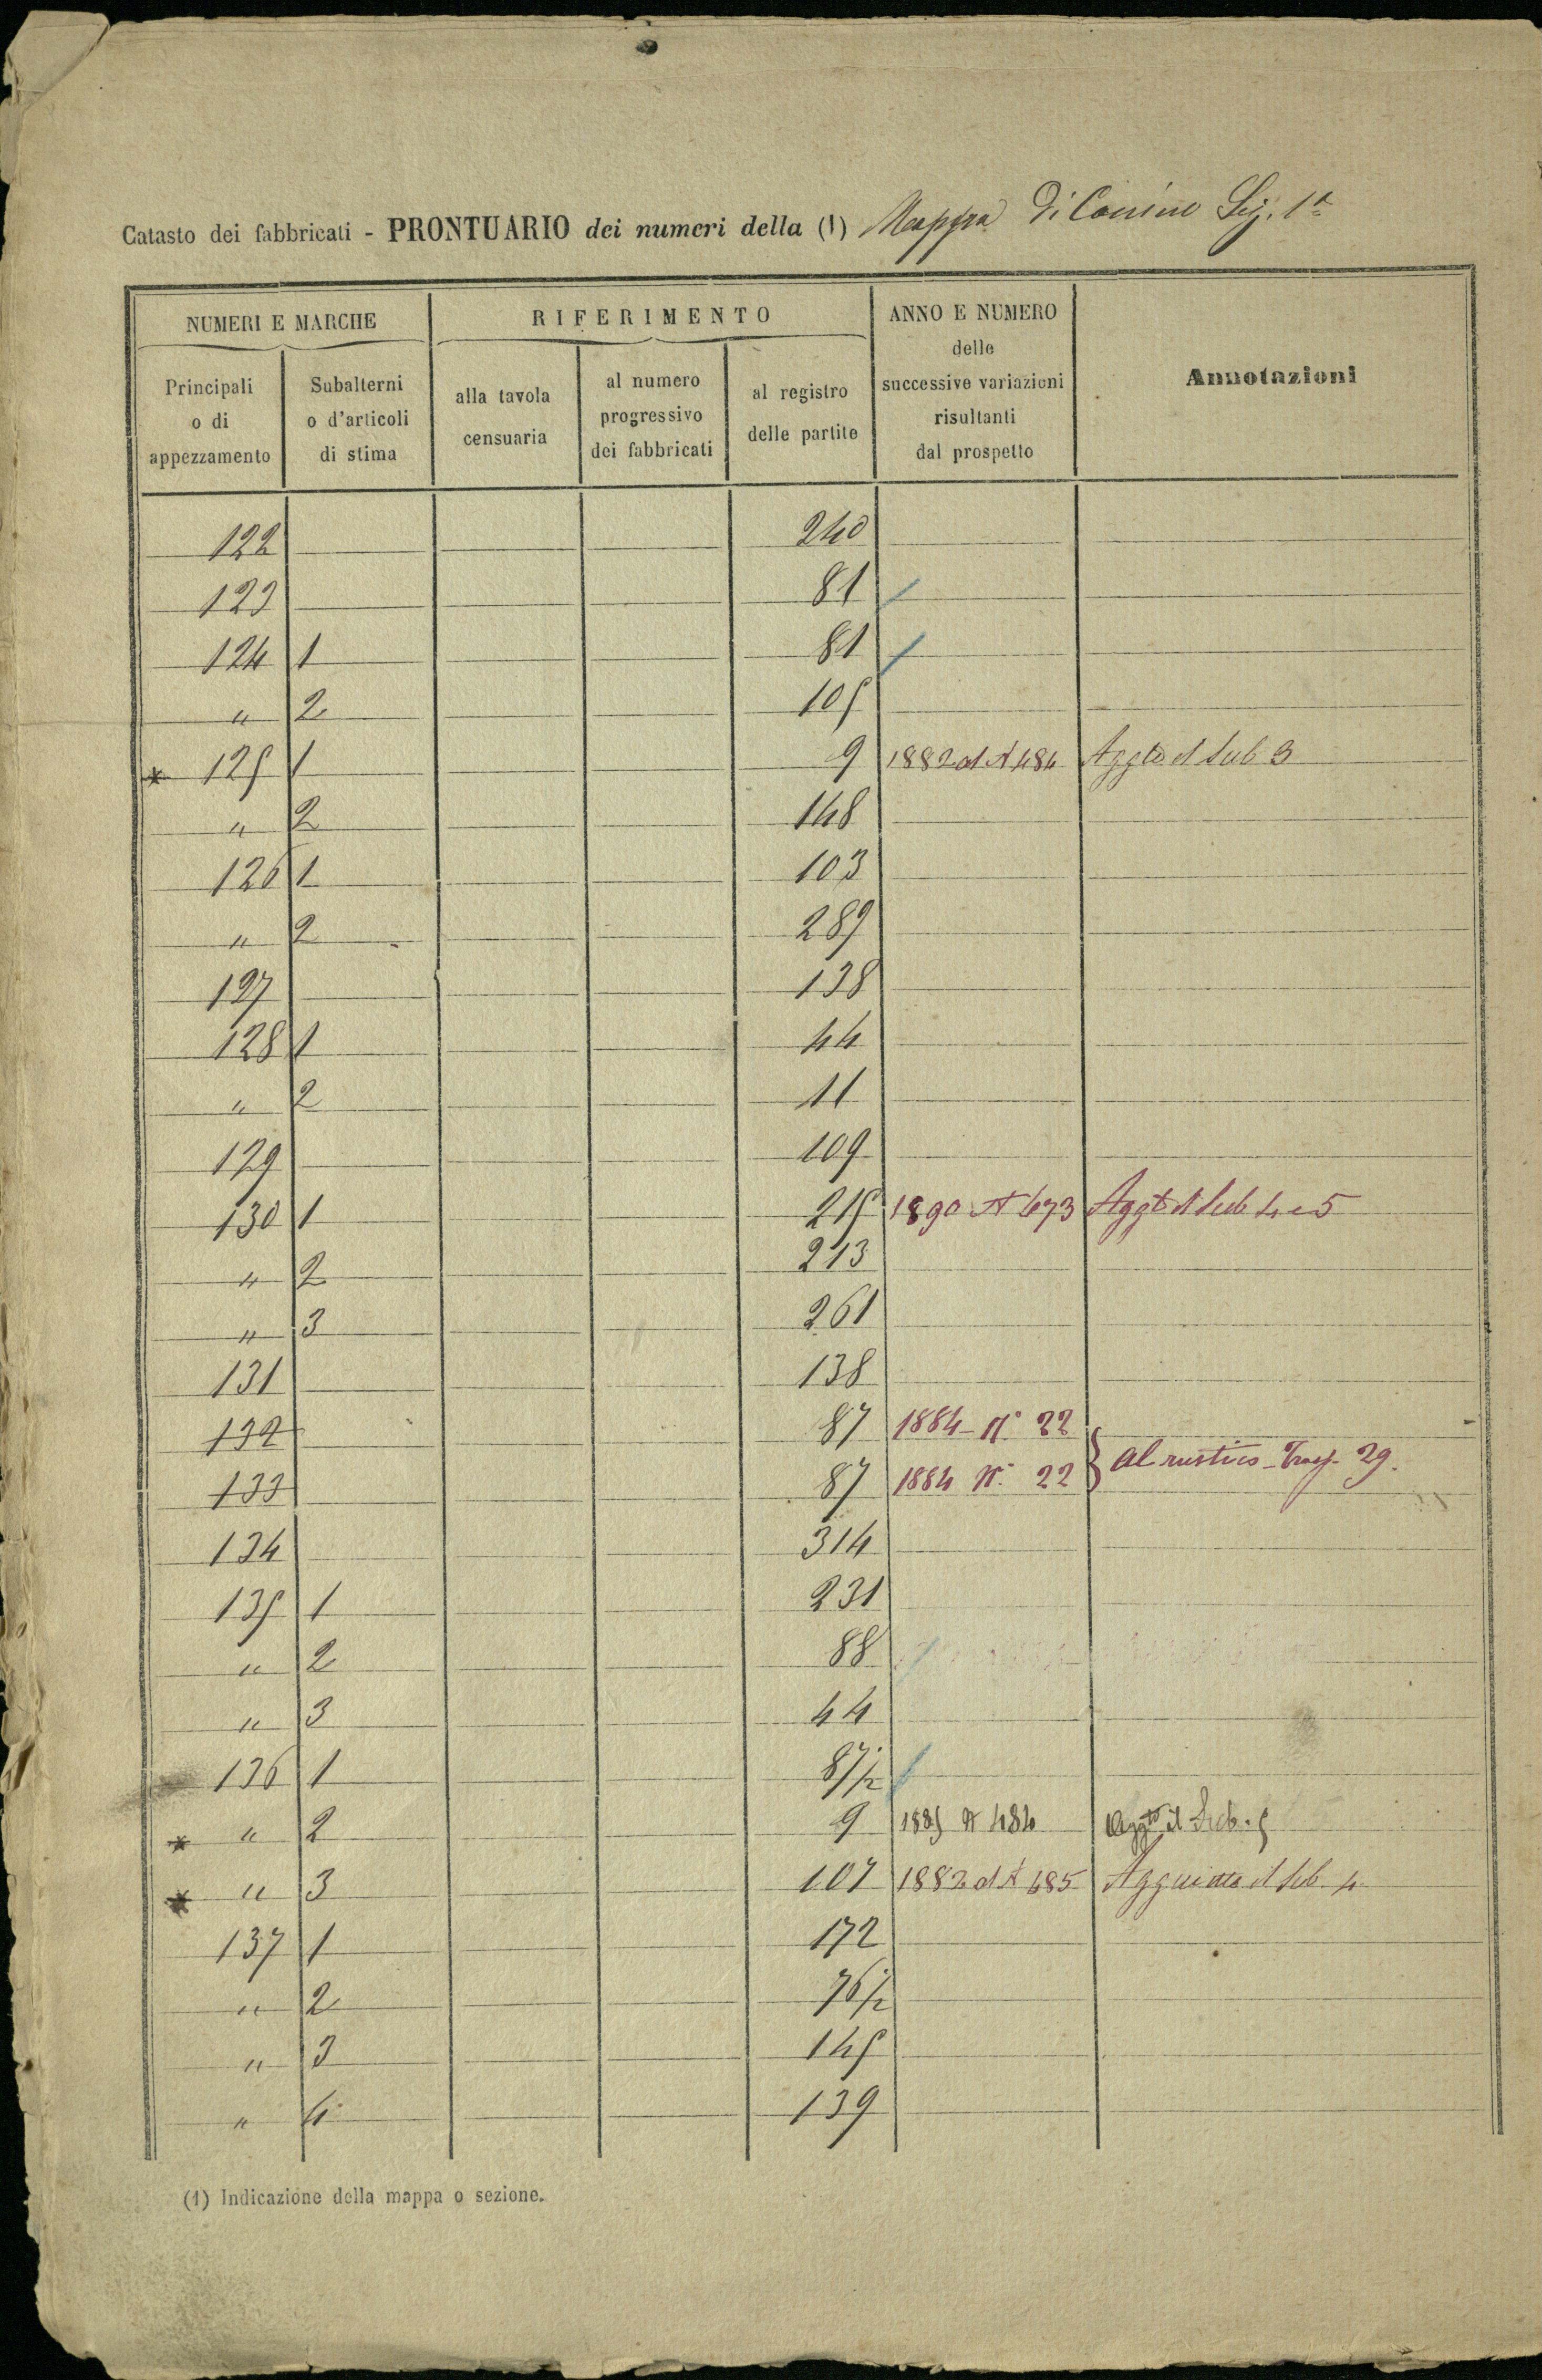 Catasto dei fabbricati - PRONTUARIO dei numeri della (1) Mappa Di Canino Sez. 1ª
NUMERI E MARCHE
RIFERIMENTO
ANNO E NUMERO
delle
successive variazioni
risultanti
dal prospetto
Annotazioni
Principali
o di
appezzamento
Subalterni
o d'articoli
di stima
alla tavola
censuaria
al numero
progressivo
dei fabbricati
al registro
delle partite
122 240
123 81 /
124 1 81 /
" 2 105
* 125 1 9 1882 al N 484 Aggto il Sub 3
" 2 148
126 1 103
" 2 289
127 138
128 1 44
" 2 11
129 109
130 1 215 1890 N 673 Aggto il Sub 4 e 5
" 2 213
" 3 261
131 138
132 87 1884 - N° 22
133 87 1884 N° 22 } Al rustico - Trasp. 29.
134 314
135 1 231
" 2 88 /
" 3 44
136 1 87/2 /
* " 2 9 1885 N 484 Aggto il Sub. 5
* " 3 107 1882 al N 485 Aggiunto il Sub. 4
137 1 172
" 2 76/2
" 3 145
" 4 139
(1) Indicazione della mappa o sezione.